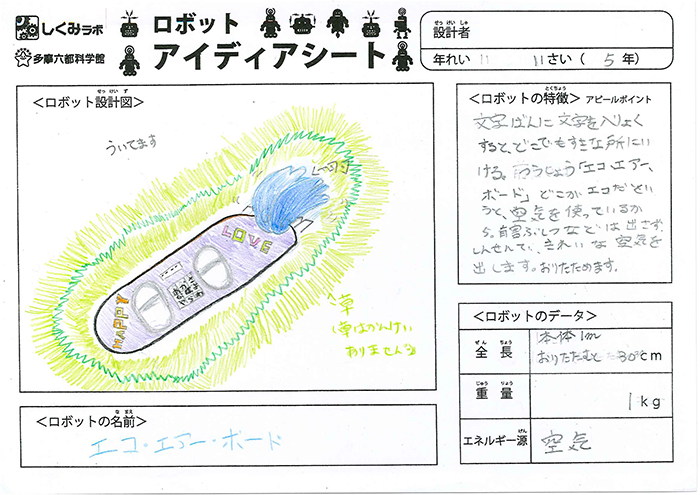 しくみラボ
多摩六都科学館
ロボット
アイディアシート
設計者
せっけいしゃ
年れい 11 11さい( 5 年)
<ロボット設計図>
せっけいず
ういてます
LOVE
HAPPY
草
(草はかんけい
ありません)
<ロボットの特徴> アピールポイント
とくちょう
文字ばんに文字を入りょく
すると、どこでもすきな所にい
ける。「エコ・エアー・
ボード」どこがエコだとい
うと、空気を使っているか
ら。有害ぶしつなどは出さず、
しんせんで、きれいな空気を
出します。おりたためます。
<ロボットのデータ>
全長
ぜんちょう
本体1m
おりたたむと 30cm
重量
じゅうりょう
1kg
エネルギー源
げん
空気
<ロボットの名前>
なまえ
エコ・エアー・ボード